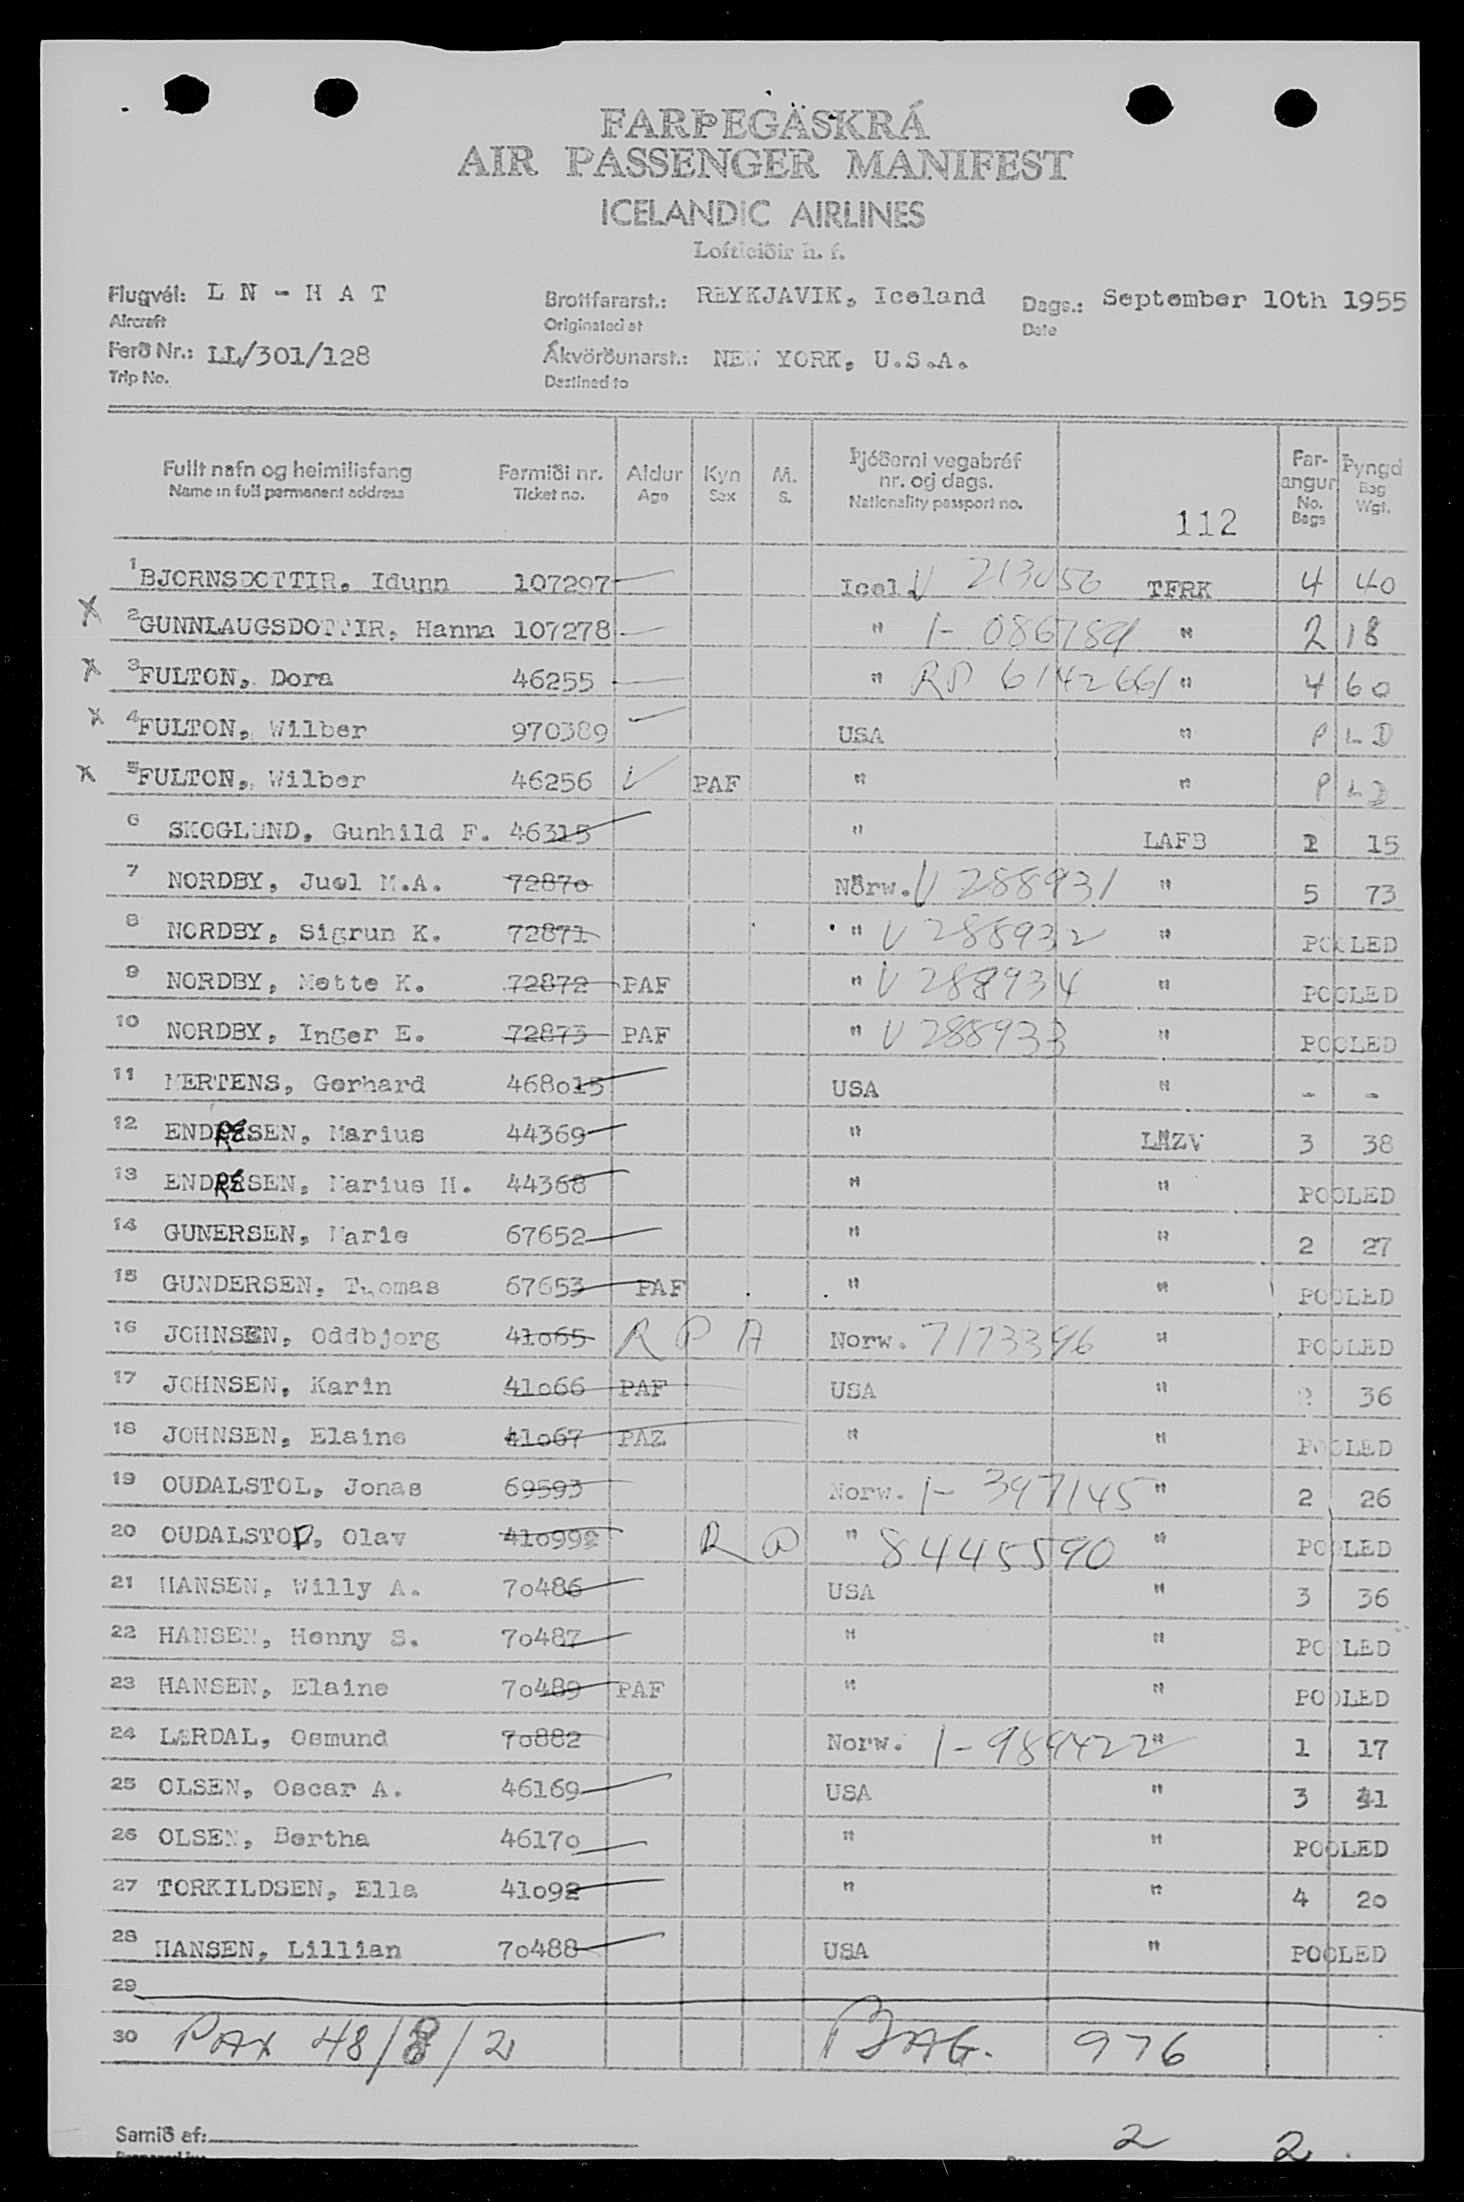 FARÞEGASKRÁ
AIR PASSENGER MANIFEST
ICELANDIC AIRLINES
Loftleiðir h. f.
Flugvél: L N - H A T Brottfararst.: REYKJAVIK, Iceland Dags.: September 10th 1955
Aircraft Originated at Date
Ferð Nr.: LL/301/128 Ákvörðunarst.: NEW YORK, U.S.A.
Trip No. Destined to
Fullt nafn og heimilisfang Farmiði nr. Aldur Kyn M. Þjóðerni vegabréf nr. og dags. Far-angur Þyngd
Name in full permanent address Ticket no. Age Sex S. Nationality passport no. 112 No. Bags Bag Wgt.
1 BJORNSDOTTIR, Idunn 107297 Icel. V 213056 TFRK 4 40
X 2 GUNNLAUGSDOTTIR, Hanna 107278 " 1- 086789 " 2 18
X 3 FULTON, Dora 46255 " RP 6142661 " 4 60
X 4 FULTON, Wilber 970389 USA " P L D
X 5 FULTON, Wilber 46256 PAF " " P L D
6 SKOGLUND, Gunhild F. 46315 " LAFB 1 15
7 NORDBY, Juel M.A. 72870 Norw. V 288931 " 5 73
8 NORDBY, Sigrun K. 72871 " V 288932 " POOLED
9 NORDBY, Mette K. 72872 PAF " V 288934 " POOLED
10 NORDBY, Inger E. 72873 PAF " V 288933 " POOLED
11 MERTENS, Gerhard 468015 USA " - -
12 ENDRESEN, Marius 44369 " LNZV 3 38
13 ENDRESEN, Marius H. 44368 " " POOLED
14 GUNERSEN, Marie 67652 " " 2 27
15 GUNDERSEN, Thomas 67653 PAF " " POOLED
16 JOHNSEN, Oddbjorg 41065 R P A Norw. 7173396 " POOLED
17 JOHNSEN, Karin 41066 PAF USA " 36
18 JOHNSEN, Elaine 41067 PAZ " " POOLED
19 OUDALSTOL, Jonas 69593 Norw. 1- 397145 " 2 26
20 OUDALSTOP, Olav 410992 R P " 8445590 " POOLED
21 HANSEN, Willy A. 70486 USA " 3 36
22 HANSEN, Henny S. 70487 " " POOLED
23 HANSEN, Elaine 70489 PAF " " POOLED
24 LÆRDAL, Osmund 70882 Norw. 1-989422 " 1 17
25 OLSEN, Oscar A. 46169 USA " 3 41
26 OLSEN, Bertha 46170 " " POOLED
27 TORKILDSEN, Ella 41092 " " 4 20
28 HANSEN, Lillian 70488 USA " POOLED
29
30 PAX 48/8/2 BAG. 976
Samið af: 2 2